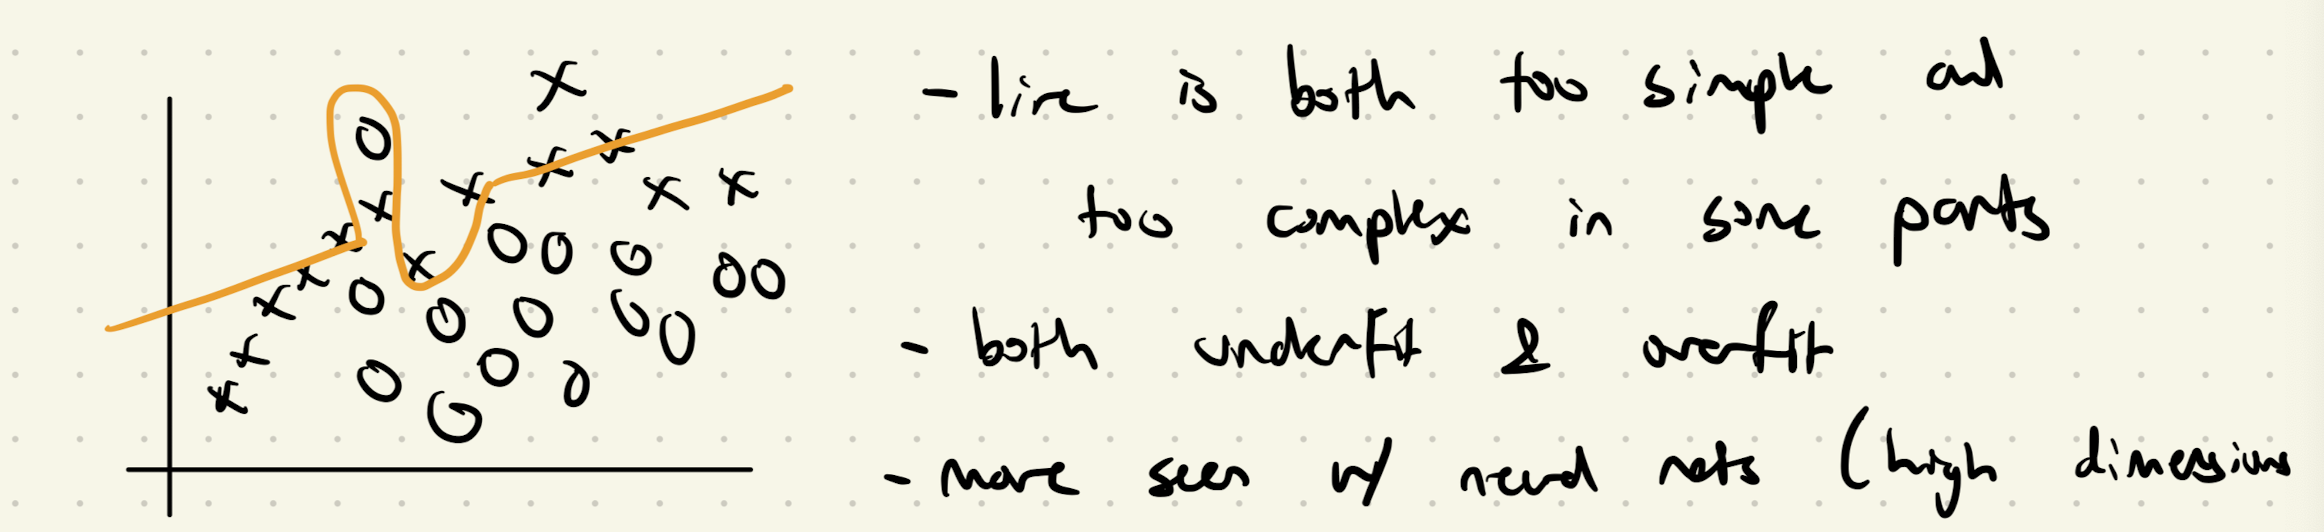 - line is both too simple and
too complex in some parts
- both underfit & overfit
- more seen w/ neural nets (high dimensions